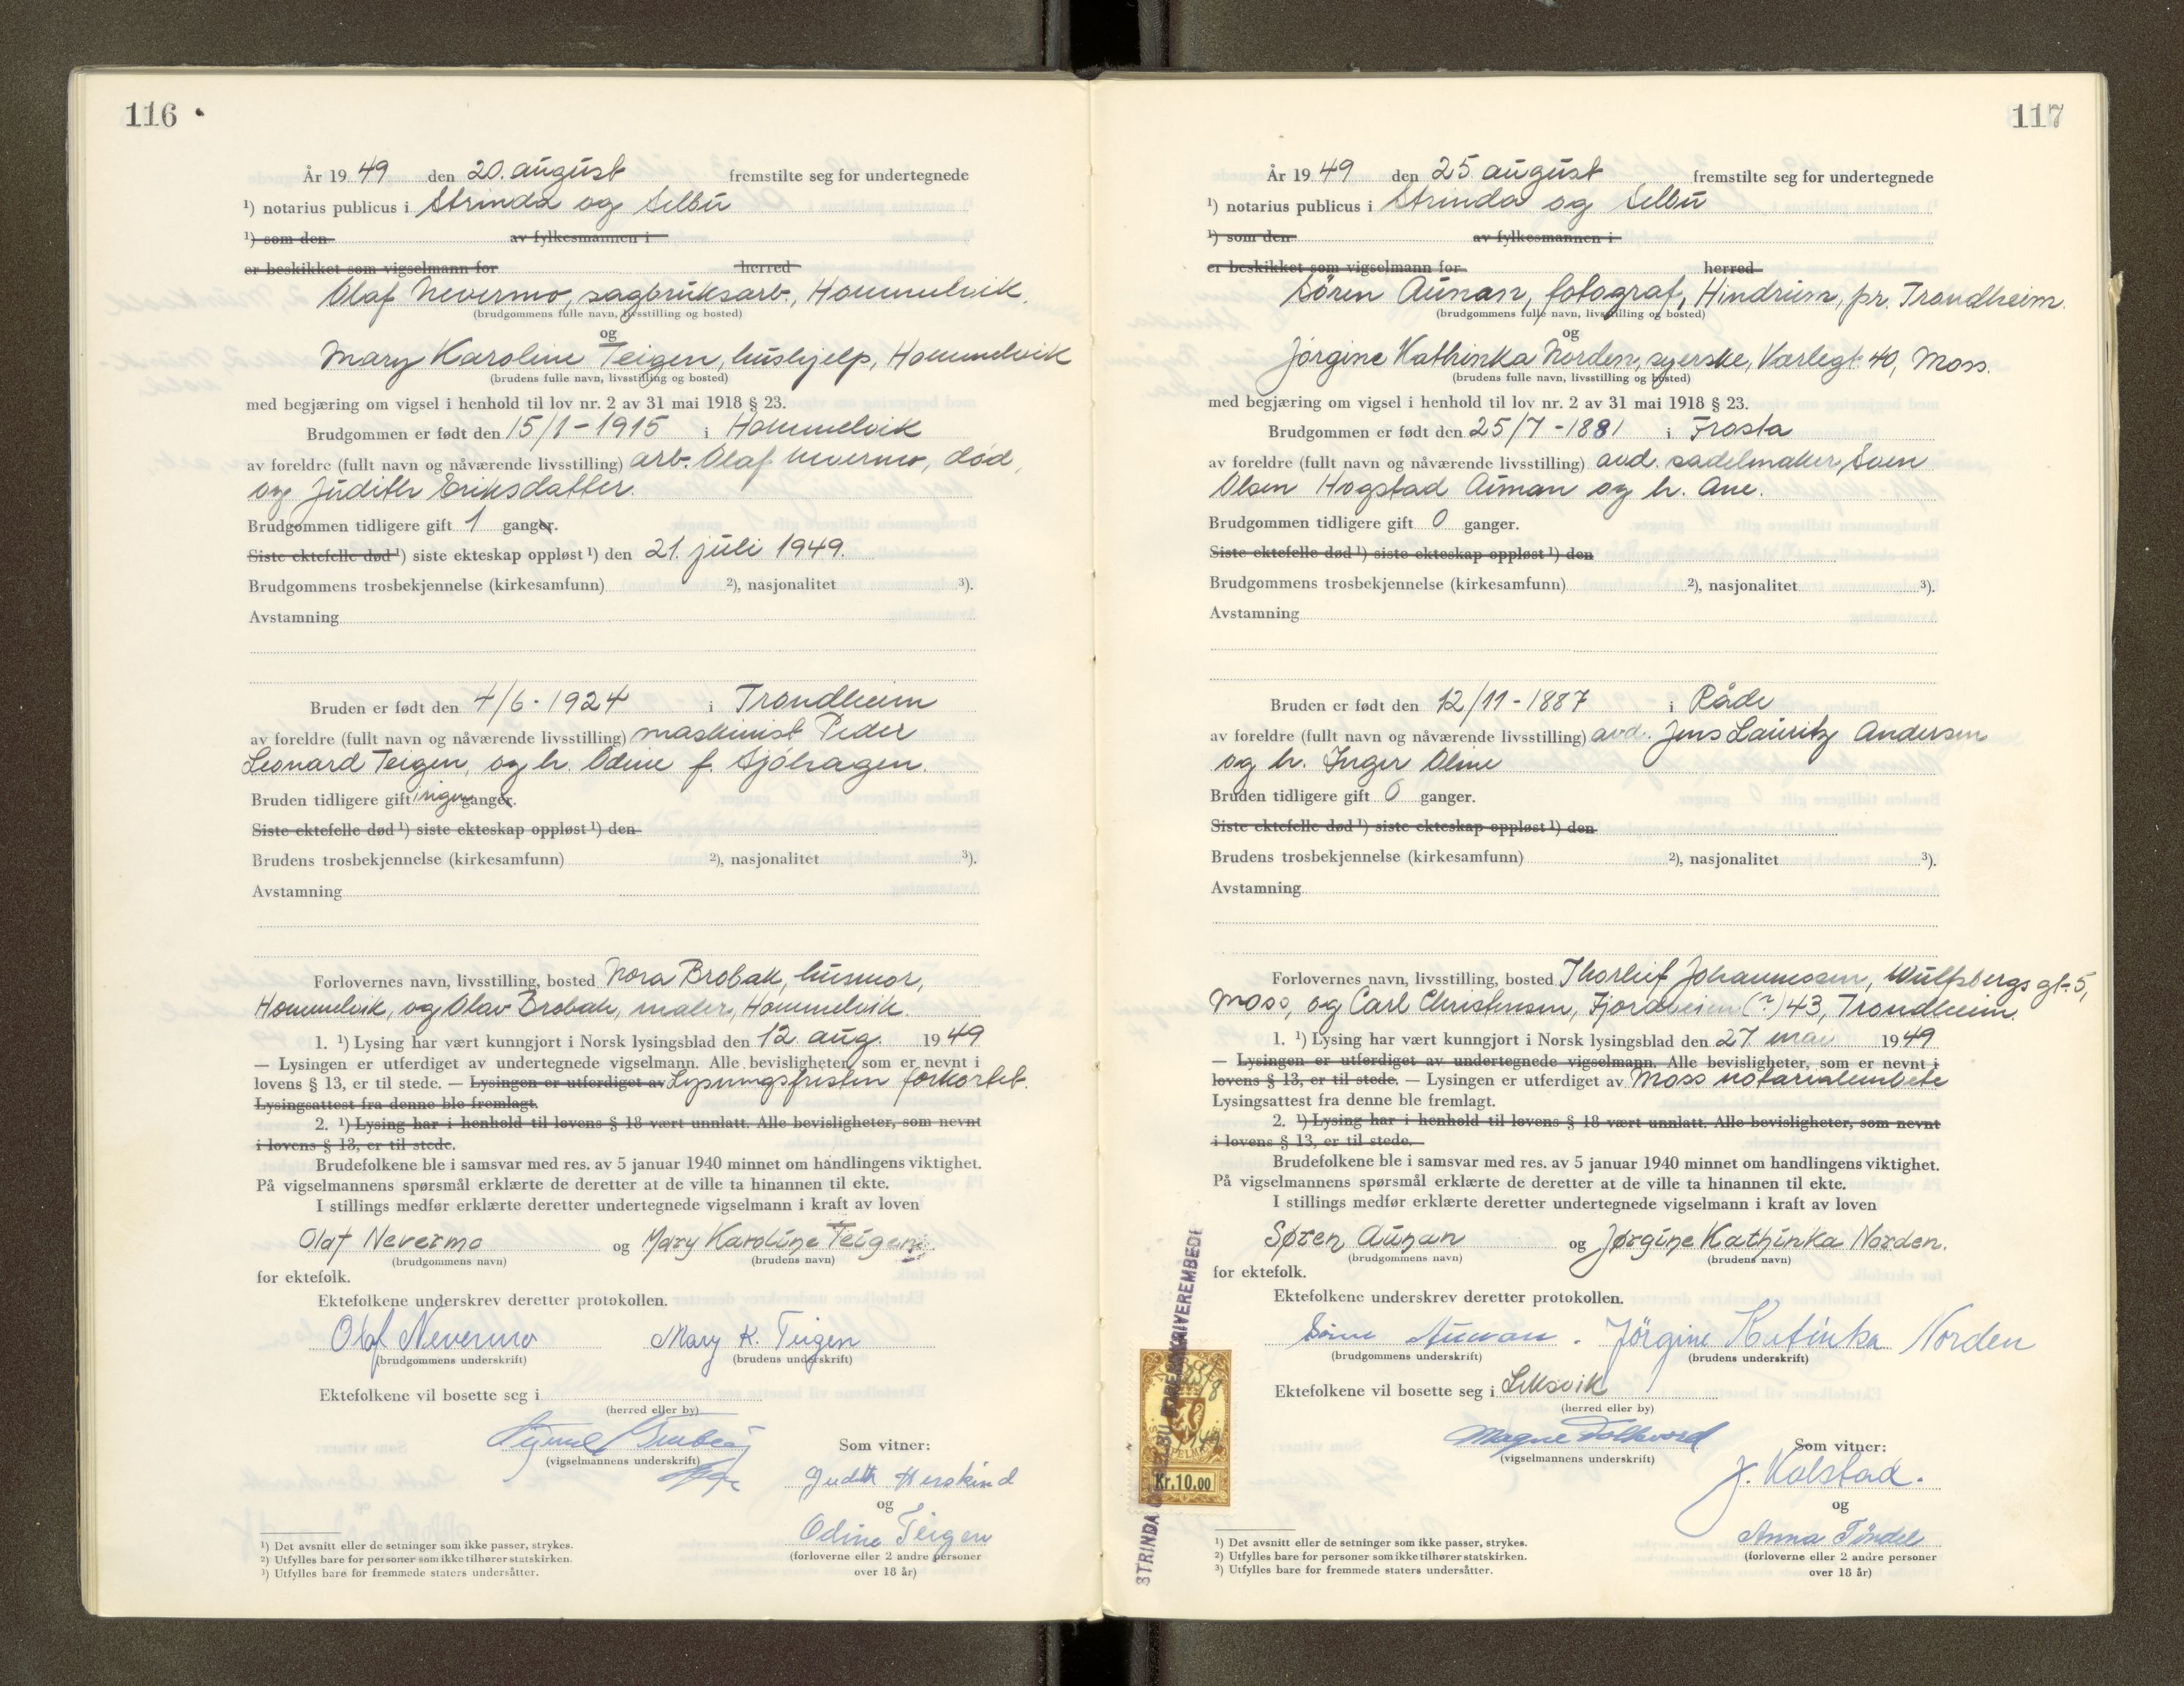 116
År 19 49 den 20. august fremstilte seg for undertegnede
¹) notarius publicus i Strinda og Selbu
¹) som den av fylkesmannen i
er beskikket som vigselmann for herred
Olaf Nevermo, sagbruksarb., Hommelvik.
(brudgommens fulle navn, livsstilling og bosted)
og
Mary Karoline Teigen, hushjelp, Hommelvik
(brudens fulle navn, livsstilling og bosted)
med begjæring om vigsel i henhold til lov nr. 2 av 31 mai 1918 § 23.
Brudgommen er født den 15/1-1915 i Hommelvik
av foreldre (fullt navn og nåværende livsstilling) arb. Olaf Nevermo, død,
og Judith Eriksdatter.
Brudgommen tidligere gift 1 ganger.
Siste ektefelle død ¹) siste ekteskap oppløst ¹) den 21. juli 1949.
Brudgommens trosbekjennelse (kirkesamfunn) ²), nasjonalitet ³).
Avstamning
Bruden er født den 4/6-1924 i Trondheim
av foreldre (fullt navn og nåværende livsstilling) maskinist Peder
Leonard Teigen, og h. Odine f. Sjöhagen.
Bruden tidligere gift ingen ganger.
Siste ektefelle død ¹) siste ekteskap oppløst ¹) den
Brudens trosbekjennelse (kirkesamfunn) ²), nasjonalitet ³).
Avstamning
Forlovernes navn, livsstilling, bosted Nora Brobak, husmor,
Hommelvik, og Olav Brobak, maler, Hommelvik.
1. ¹) Lysing har vært kunngjort i Norsk lysingsblad den 12. aug. 19 49
— Lysingen er utferdiget av undertegnede vigselmann. Alle bevisligheter, som er nevnt i
lovens § 13, er til stede. — Lysingen er utferdiget av Lysningsfristen forkortet.
Lysingsattest fra denne ble fremlagt.
2. ¹) Lysing har i henhold til lovens § 18 vært unnlatt. Alle bevisligheter, som nevnt
i lovens § 13, er til stede.
Brudefolkene ble i samsvar med res. av 5 januar 1940 minnet om handlingens viktighet.
På vigselmannens spørsmål erklærte de deretter at de ville ta hinannen til ekte.
I stillings medfør erklærte deretter undertegnede vigselmann i kraft av loven
Olaf Nevermo og Mary Karoline Teigen
(brudgommens navn) (brudens navn)
for ektefolk.
Ektefolkene underskrev deretter protokollen.
Olaf Nevermo Mary K. Teigen
(brudgommens underskrift) (brudens underskrift)
Ektefolkene vil bosette seg i
(herred eller by)
Som vitner:
(vigselmannens underskrift)
Judith Herskind
og
Odine Teigen
(forloverne eller 2 andre personer
over 18 år)
¹) Det avsnitt eller de setninger som ikke passer, strykes.
²) Utfylles bare for personer som ikke tilhører statskirken.
³) Utfylles bare for fremmede staters undersåtter.
117
År 19 49 den 25. august fremstilte seg for undertegnede
¹) notarius publicus i Strinda og Selbu
¹) som den av fylkesmannen i
er beskikket som vigselmann for herred
Sören Aunan, fotograf, Hindrum, pr. Trondheim.
(brudgommens fulle navn, livsstilling og bosted)
og
Jörgine Kathinka Norden, syerske, Varlegt. 40, Moss.
(brudens fulle navn, livsstilling og bosted)
med begjæring om vigsel i henhold til lov nr. 2 av 31 mai 1918 § 23.
Brudgommen er født den 25/7-1881 i Frosta
av foreldre (fullt navn og nåværende livsstilling) avd. sadelmaker Sven
Olsen Hogstad Aunan og h. Ane.
Brudgommen tidligere gift 0 ganger.
Siste ektefelle død ¹) siste ekteskap oppløst ¹) den
Brudgommens trosbekjennelse (kirkesamfunn) ²), nasjonalitet ³).
Avstamning
Bruden er født den 12/11-1887 i Råde
av foreldre (fullt navn og nåværende livsstilling) avd. Jens Lauritz Andersen
og h. Inger Oline
Bruden tidligere gift 0 ganger.
Siste ektefelle død ¹) siste ekteskap oppløst ¹) den
Brudens trosbekjennelse (kirkesamfunn) ²), nasjonalitet ³).
Avstamning
Forlovernes navn, livsstilling, bosted Thorleif Johannessen, Wulfsbergs gt. 5,
Moss, og Carl Christensen, Fjordheim (?) 43, Trondheim.
1. ¹) Lysing har vært kunngjort i Norsk lysingsblad den 27 mai 19 49
— Lysingen er utferdiget av undertegnede vigselmann. Alle bevisligheter, som er nevnt i
lovens § 13, er til stede. — Lysingen er utferdiget av Moss notarialembete
Lysingsattest fra denne ble fremlagt.
2. ¹) Lysing har i henhold til lovens § 18 vært unnlatt. Alle bevisligheter, som nevnt
i lovens § 13, er til stede.
Brudefolkene ble i samsvar med res. av 5 januar 1940 minnet om handlingens viktighet.
På vigselmannens spørsmål erklærte de deretter at de ville ta hinannen til ekte.
I stillings medfør erklærte deretter undertegnede vigselmann i kraft av loven
Søren Aunan og Jørgine Kathinka Norden.
(brudgommens navn) (brudens navn)
for ektefolk.
Ektefolkene underskrev deretter protokollen.
Sören Aunan. Jörgine Katinka Norden
(brudgommens underskrift) (brudens underskrift)
Ektefolkene vil bosette seg i Leksvik
(herred eller by)
Magne Folkvord
Som vitner:
(vigselmannens underskrift)
J. Kolstad.
og
Anna Töndel
(forloverne eller 2 andre personer
over 18 år)
Kr. 10.00
¹) Det avsnitt eller de setninger som ikke passer, strykes.
²) Utfylles bare for personer som ikke tilhører statskirken.
³) Utfylles bare for fremmede staters undersåtter.